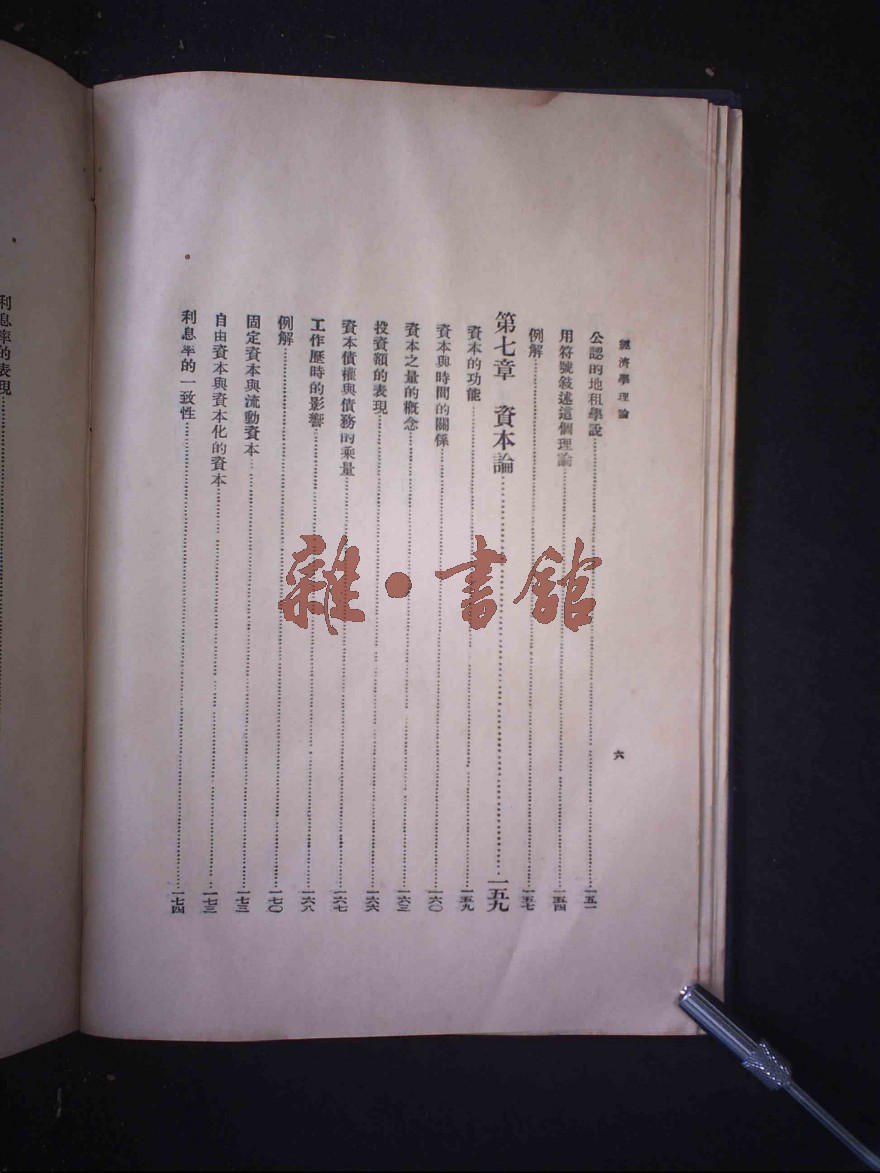 經濟學理論
六
公認的地租學說……一五一
用符號敘述這個理論……一五四
例解……一五七
第七章 資本論……一五九
資本的功能……一五九
資本與時間的關係……一六〇
資本之量的概念……一六三
投資額的表現……一六六
資本債權與債務的乘量……一六七
工作歷時的影響……一六八
例解……一七〇
固定資本與流動資本……一七三
自由資本與資本化的資本……一七三
利息率的一致性……一七四
利息率的表現
雜·書館